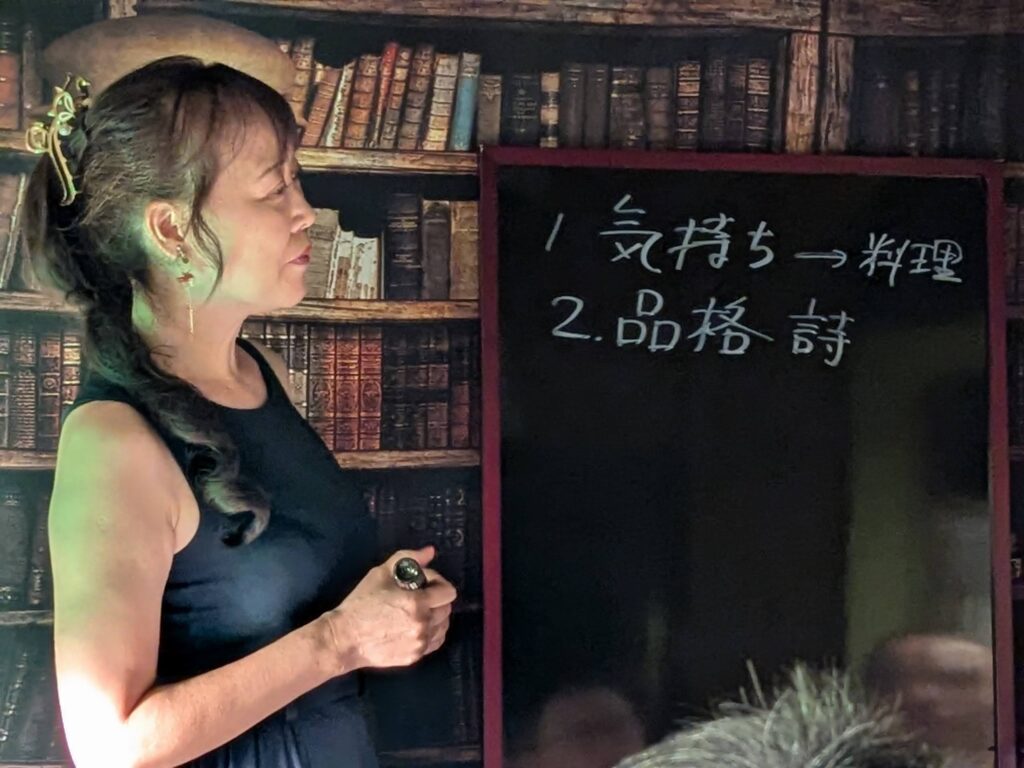 1 気持ち→料理
2. 品格 詩